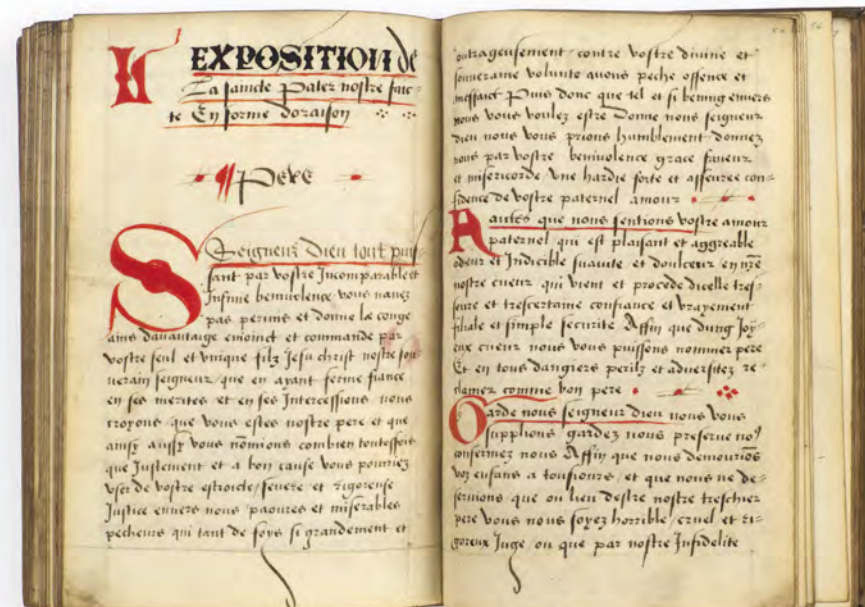 L EXPOSITION de
La saincte Pater nostre faic-
te En forme doraison
¶ Pere
Seigneur Dieu tout puis-
sant par vostre Incomparable et
Infinie benivolence vous navez
pas permis et donne le conge
ains davantaige enioinct et commande par
vostre seul et unique filz Jesu christ nostre sou-
verain seigneur que en ayant ferme fiance
en ses merites et en ses Intercessions nous
croyons que vous estes nostre pere et que
ainsy aussy vous nomions combien toutesfois
que Justement et a bon cause vous pourriez
user de vostre estroicte / severe et rigoreuse
Justice envers nous paovres et miserables
pecheurs qui tant de foys si grandement et
oultrageusement contre vostre divine et
souveraine volunte avons peche offence et
meffaict Puis donc que tel et si bening envers
nous vous voulez estre Donne nous seigneur
dieu nous vous prions humblement donnez
nous par vostre benivolence grace faveur
et misericorde une hardie forte et asseuree con-
fidence de vostre paternel amour
Faictes que nous sentions vostre amour
paternel qui est plaisant et aggreable
odeur et Indicible suavite et doulceur en nr̃e
nostre cueur qui vient et procede dicelle tres-
seure et trescertaine confiance et vrayement
filiale et simple securite Affin que dung Joy-
eux cueur nous vous puissons nommer pere
Et en tous dangiers perilz et adversitez re-
clamer comme bon pere
Garde nous seigneur dieu nous vous
supplions gardez nous preserve no9
confermez nous Affin que nous demourios
voz enfans a tousiours et que nous ne de-
servions que ou lieu destre nostre treschier
pere vous nous soyez horrible / cruel et ri-
goreux Juge / ou que par nostre Infidelite